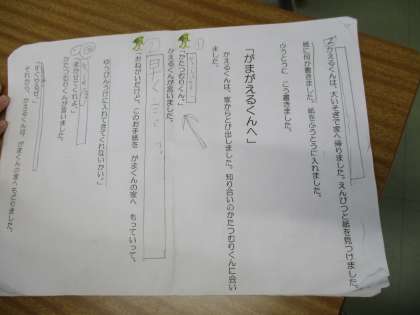 かえるくんは、大いそぎで家へ帰りました。えんぴつと紙を見つけました。
紙に何か書きました。紙をふうとうに入れました。
ふうとうに こう書きました。
「がまがえるくんへ」
かえるくんは、家からとび出しました。知り合いのかたつむりくんに会い
ました。
「かたつむりくん。」
かえるくんが言いました。
「おねがいだけど、このお手紙を がまくんの家へ もっていって、
ゆうびんうけに入れてきてくれないかい。」
「まかせてくれよ。」
かたつむりくんが言いました。
「すぐやるぜ。」
それから、かえるくんは、がまくんの家へもどりました。